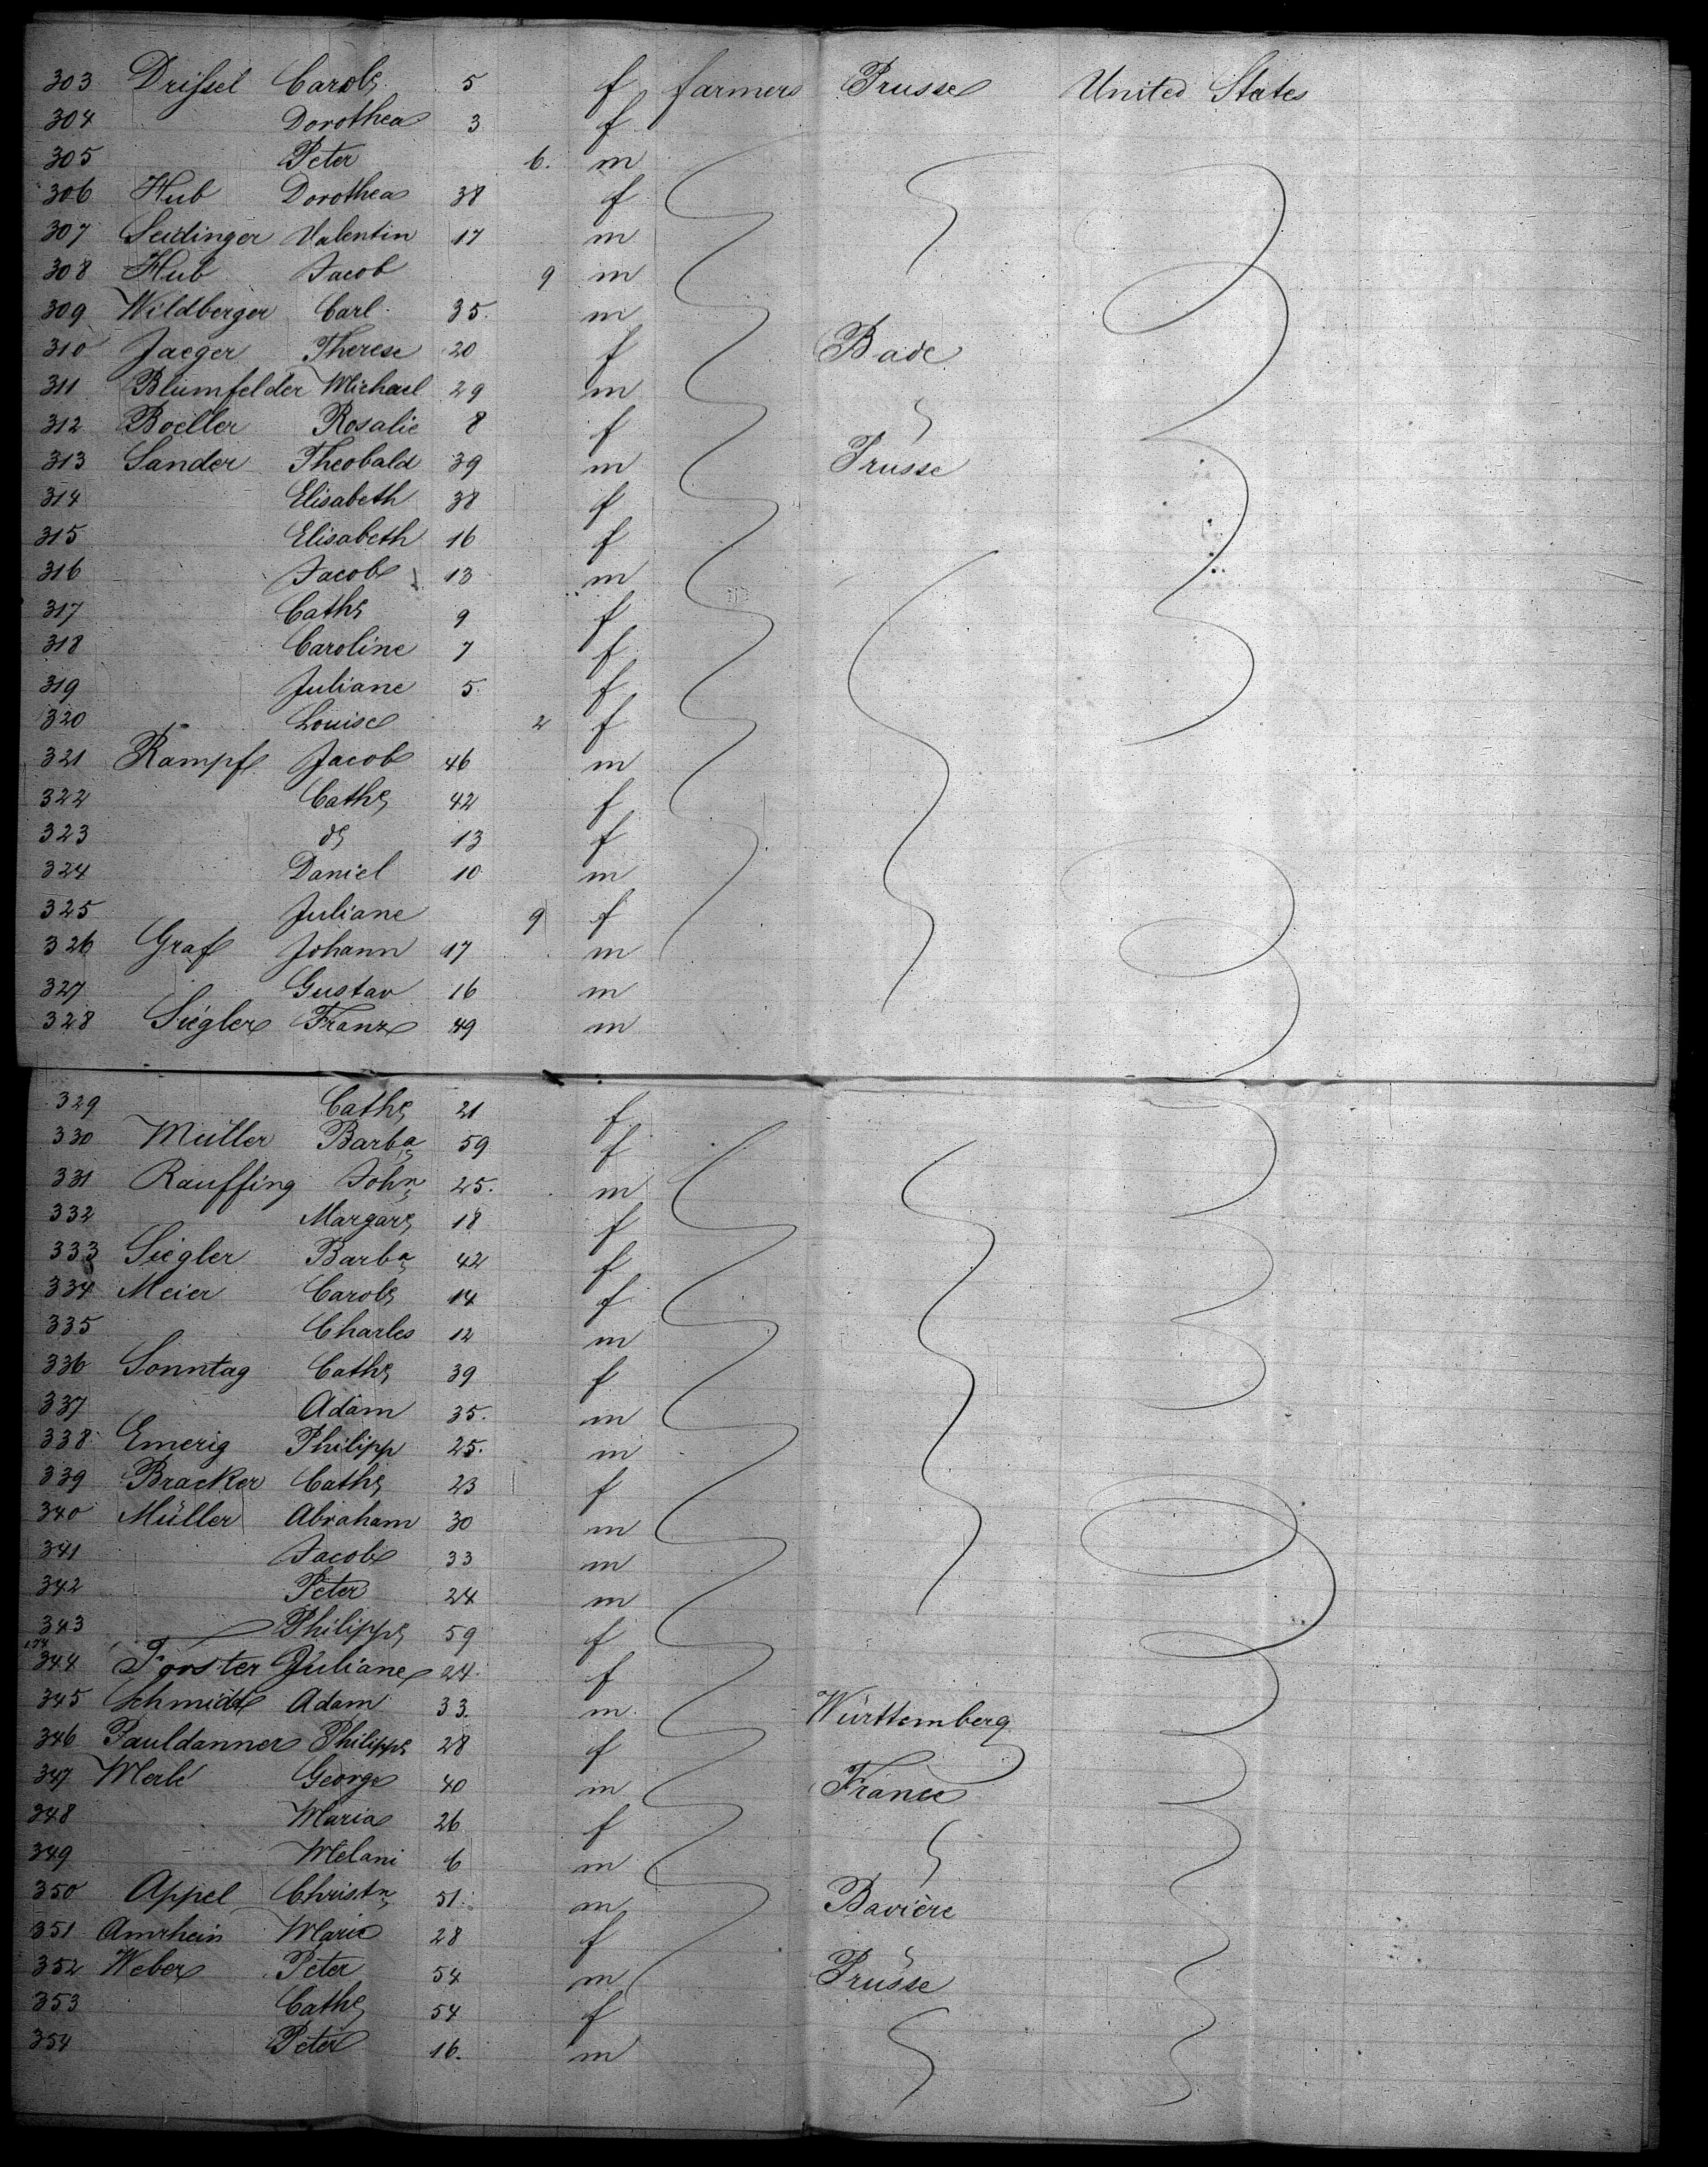 303 Drissel Carol. 5 f farmers Prusse United States
304 Dorothea 3 f
305 Peter 6. m
306 Hub Dorothea 38 f
307 Seidinger Valentin 17 m
308 Hub Jacob 9 m
309 Wildberger Carl. 35. m
310 Jaeger Therese 20 f Bade
311 Blumfelder Michael 29 m
312 Boeller Rosalie 8 f
313 Sander Theobald 39 m Prusse
314 Elisabeth 38 f
315 Elisabeth 16 f
316 Jacob 13 m
317 Cath. 9 f
318 Caroline 7 f
319 Juliane 5. f
320 Louise 2 f
321 Rampf Jacob 46 m
322 Cath. 42 f
323 d. 13 f
324 Daniel 10 m
325 Juliane 9 f
326 Graf Johann 17 m
327 Gustav 16 m
328 Siegler Franz 49 m
329 Cath. 21 f
330 Müller Barba 59 f
331 Rauffing John 25. m
332 Margar. 18 f
333 Siegler Barba 42 f
334 Meier Carol. 14 f
335 Charles 12 m
336 Sonntag Cath. 39 f
337 Adam 35. m
338 Emerig Philipp 25. m
339 Bracker Cath. 23 f
340 Müller Abraham 30 m
341 Jacob 33 m
342 Peter 24 m
343 Philipp. 59 f
344 Forster Juliane 24. f
345 Schmidt Adam 33. m. Württemberg
346 Pauldanner Philipp. 28 f
347 Merlé George 40 m France
348 Maria 26 f
349 Melani 6 m
350 Appel Christn 51. m Bavière
351 Amrhein Marie 28 f
352 Weber Peter 54 m Prusse
353 Cath. 54 f
354 Peter 16. m